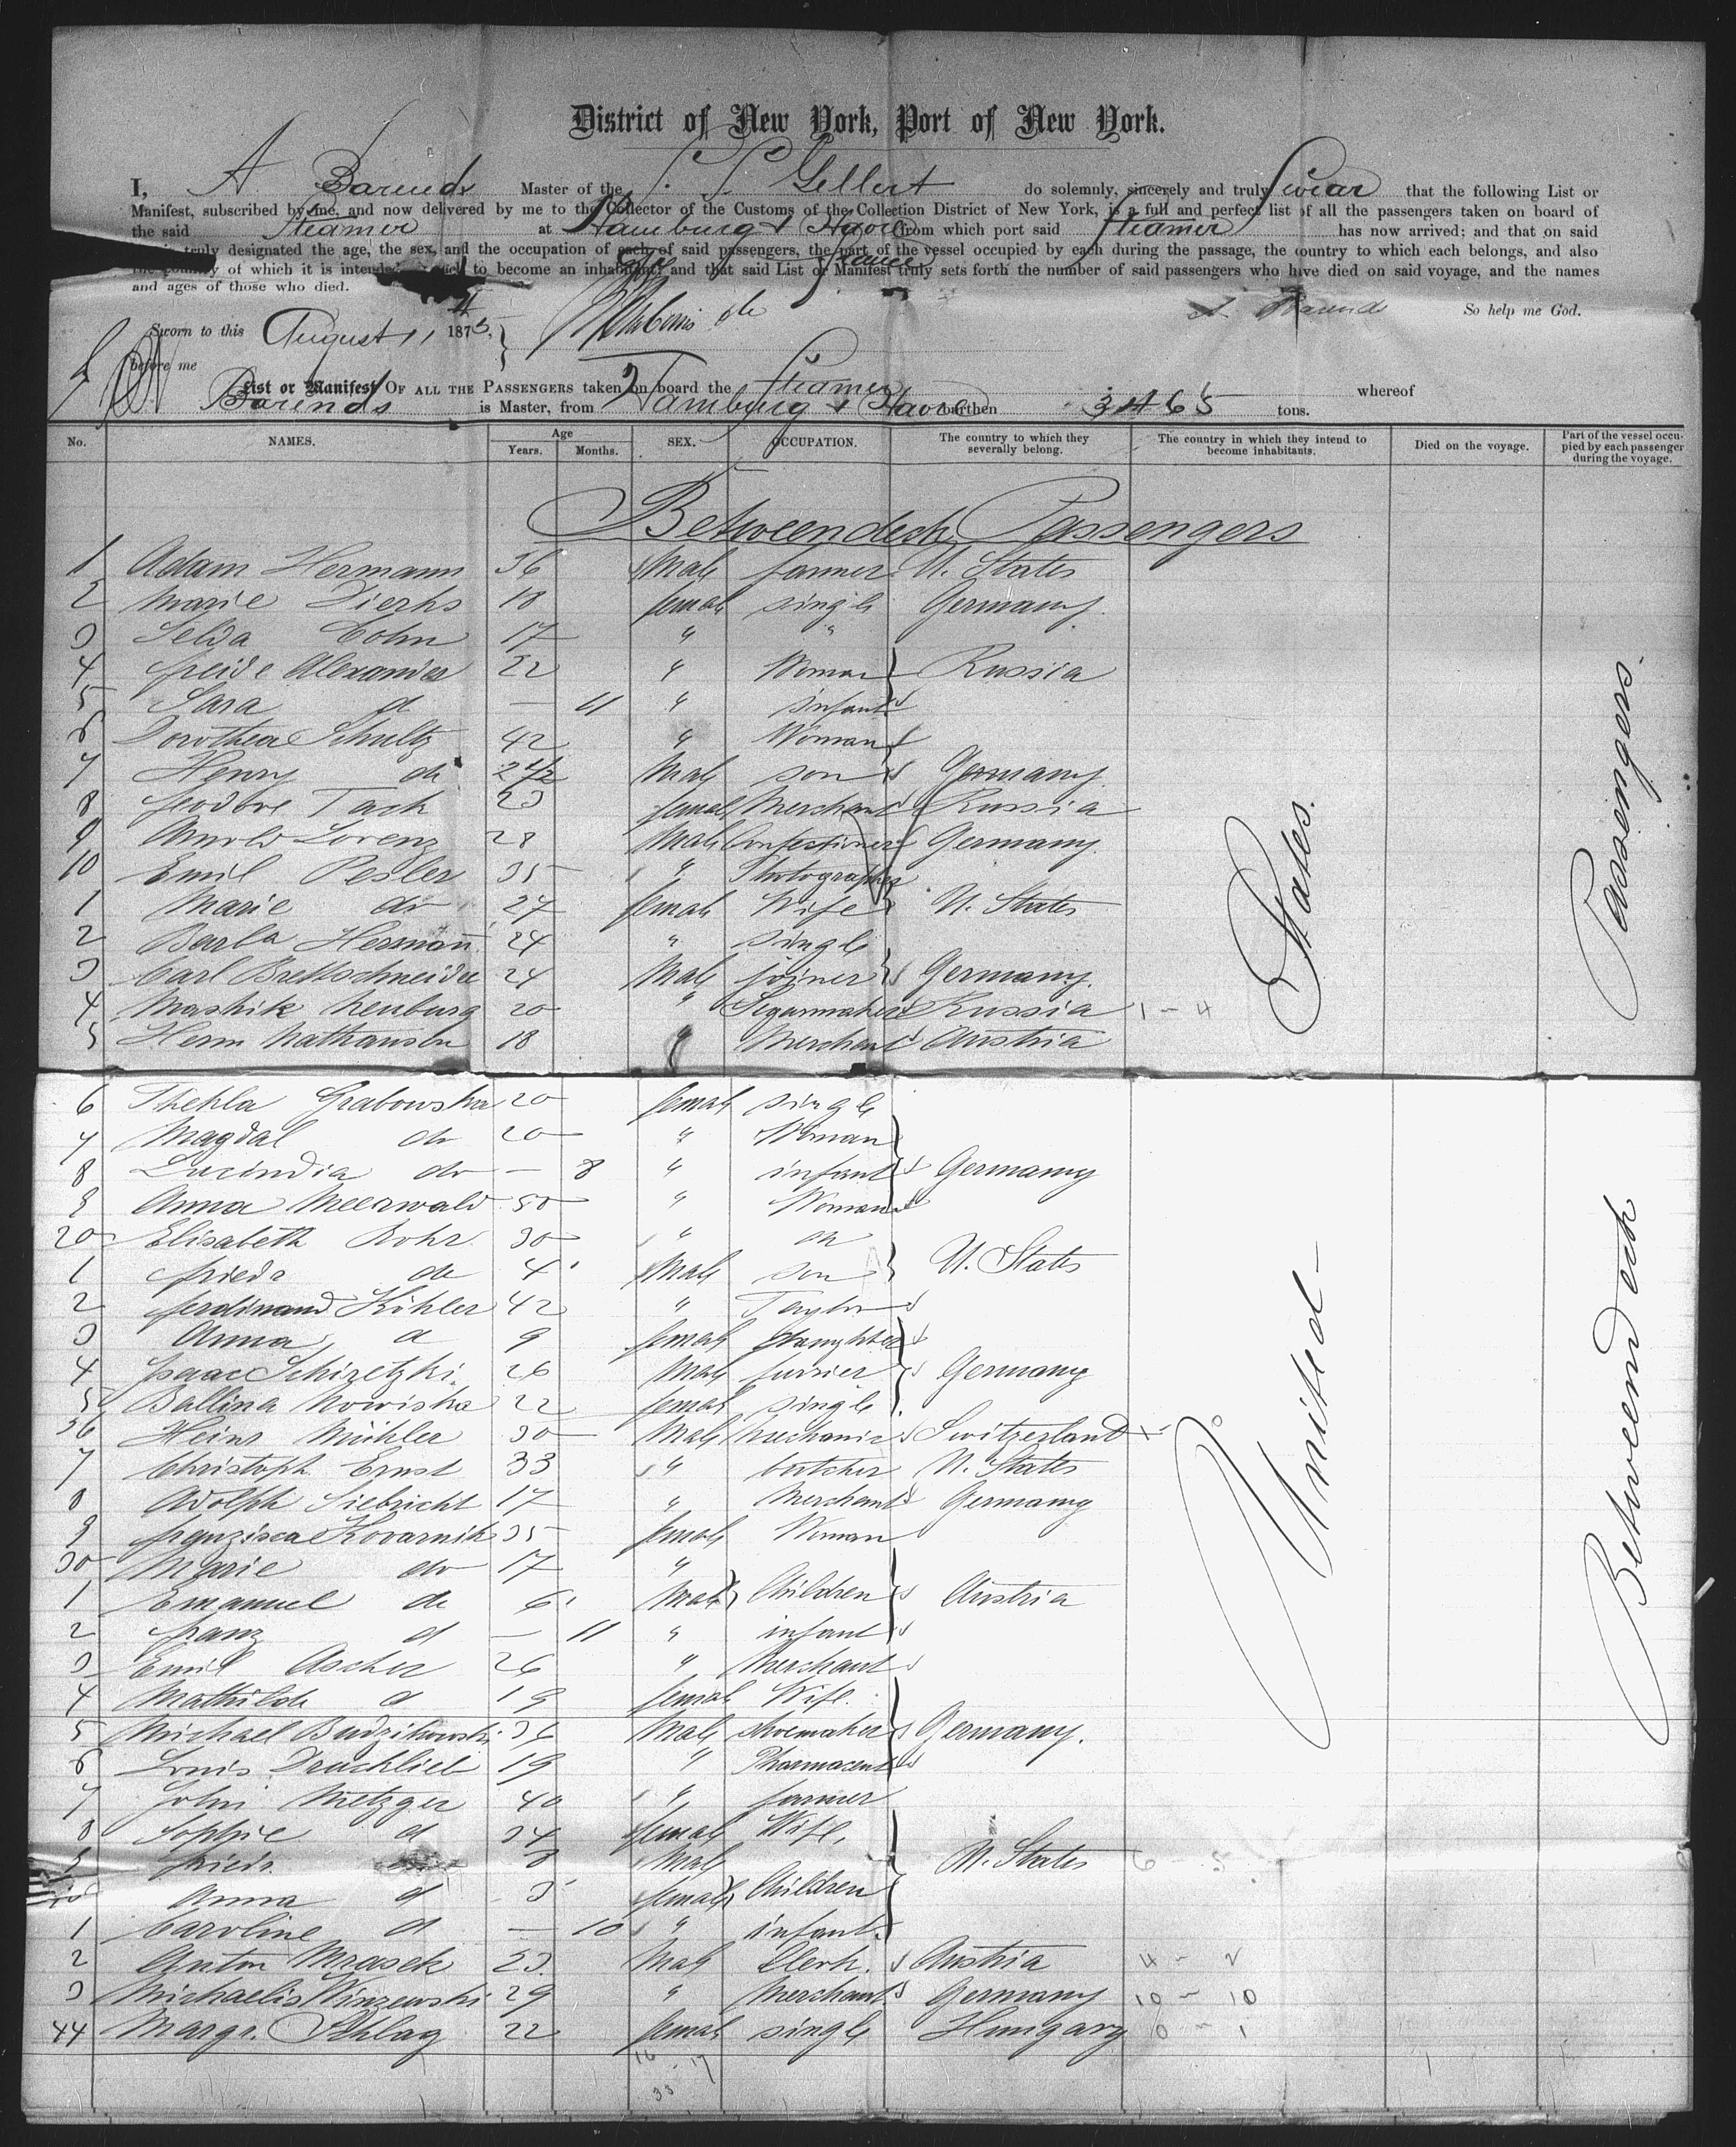 District of New York, Port of New York.
I, A Barends Master of the S. S. Gellert do solemnly, sincerely and truly Swear that the following List or
Manifest, subscribed by me, and now delivered by me to the Collector of the Customs of the Collection District of New York, is a full and perfect list of all the passengers taken on board of
the said Steamer at Hamburg & Havre from which port said Steamer has now arrived; and that on said
truly designated the age, the sex, and the occupation of each of said passengers, the part of the vessel occupied by each during the passage, the country to which each belongs, and also
the country of which it is intended to become an inhabitant and that said List or Manifest truly sets forth the number of said passengers who have died on said voyage, and the names
and ages of those who died.
A Barends So help me God.
Sworn to this August 11 187
before me
List or Manifest OF ALL THE PASSENGERS taken on board the Steamer whereof
Barends is Master, from Hamburg & Havre burthen 3465 tons.
No. NAMES. Age Years. Months. SEX. OCCUPATION. The country to which they severally belong. The country in which they intend to become inhabitants. Died on the voyage. Part of the vessel occupied by each passenger during the voyage.
Betweendeck Passengers
1 Adam Hermann 36 Male farmer U. States
2 Marie Dierks 18 female single Germany.
3 Selda Cohn 17 " "
4 Alexander 22 " Woman Russia
5 Sara d — 11 " infant
6 Dorothea Schultz 42 " Woman
7 Henry do 2 1/2 Male son Germany
8 Tack 23 female Merchant Russia
9 Arnold Lorenz 28 Male Confectioner Germany.
10 Emil Pesler 35 " Photographer
1 Marie do 27 female Wife U. States
2 Barba Hermann 24 " single
3 Carl Brettschneider 24 Male joiner Germany.
4 Maskik Neuburg 20 " Segarmaker Russia 1 - 4
5 Herm Nathansohn 18 " Merchant Austria
6 Thekla Grabowska 20 female single
7 Magdal do 20 " Woman
8 Lucindia do — 8 " infant Germany
9 Anna Meerwald 50 " Woman
20 Elisabeth Rohr 30 " do
1 friedr do 4 Male son U. States
2 ferdinand Köhler 42 " Taylor
3 Anna d 9 female daughter
4 Isaac Schiretzki 26 Male furrier Germany
5 Ballina Nowiska 22 female single
26 Heinr Mühler 30 Male Mechanic Switzerland
7 Christoph Ernst 33 " butcher U. States
8 Adolph Siebricht 17 " Merchant Germany
9 franzisca Kovarnik 35 female Woman
30 Marie do 17 "
1 Emanuel do 6 Male Children Austria
2 franz d — 11 " infant
3 Emil Ascher 26 " Merchant
4 Mathilde d 19 female Wife.
5 Michael Budzikowski 36 Male shoemaker Germany.
6 Louis Drucklieb 19 " Pharmaceut
7 John Metzger 40 " farmer
8 Sophie d 34 female Wife,
9 friedr. 8 Male U. States
40 Anna d 3 female Children
1 Caroline d — 10 " infant
2 Anton Mrasek 23. Male Clerk. Austria 4 - 2
3 Michaelis Winzewski 29 " Merchant Germany 10 - 10
44 Margr. Schlag 22 female single Hungary 0 - 1
16 - 17
33
United States.
Betweendeck Passengers.